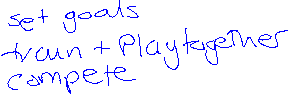 set goals
train + Play together
compete